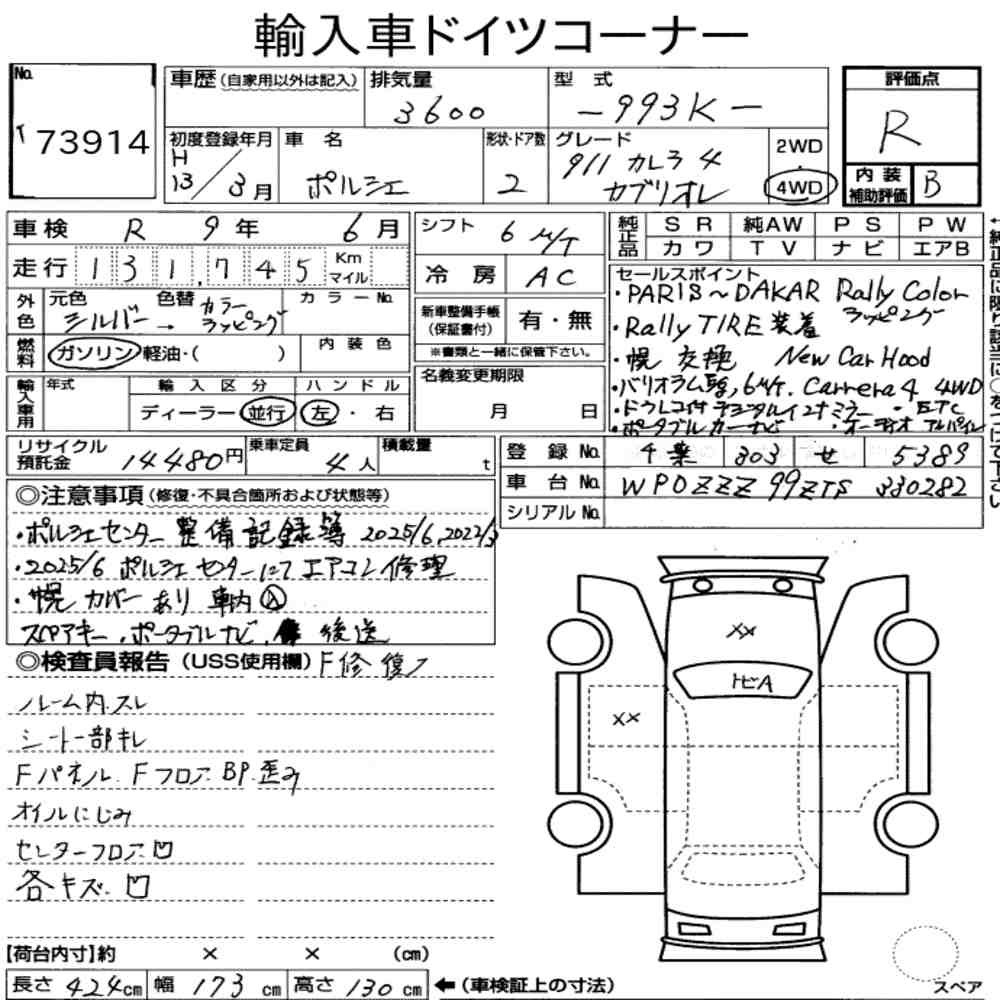 輸入車ドイツコーナー
No. 73914
車歴(自家用以外は記入)
排気量 3600
型式 -993K-
評価点 R
初度登録年月 H13/3月
車名 ポルシェ
形状・ドア数 2
グレード 911 カレラ4 カブリオレ
2WD 4WD
内装補助評価 B
車検 R 9年 6月
シフト 6 M/T
純正品 SR 純AW PS PW
カワ TV ナビ エアB
走行 131,745 Km マイル
冷房 AC
外色 元色 シルバー → 色替 カラーラッピング
カラーNo.
新車整備手帳(保証書付) 有・無
※書類と一緒に保管下さい。
燃料 ガソリン・軽油・( )
内装色
セールスポイント
・PARIS~DAKAR Rally Color ラッピング
・Rally TIRE 装着
・幌 交換 New Car Hood
・バリオラム, 6M/T. Carrera4 4WD
・ドラレコ付デジタルインナーミラー ・ETC
・ポータブルカーナビ ・オーディオ アルパイン
名義変更期限 月 日
輸入車用 年式
輸入区分 ディーラー・並行
ハンドル 左・右
リサイクル預託金 14480円
乗車定員 4人
積載量 t
登録No. 千葉 303 せ 5389
車台No. WP0ZZZ99ZTS330282
シリアルNo.
◎注意事項(修復・不具合箇所および状態等)
・ポルシェセンター 整備記録簿 2025/6, 2022/3
・2025/6 ポルシェセンターにて エアコン修理
・幌カバーあり 車内
スペアキー, ポータブルナビ, 後送
◎検査員報告(USS使用欄) F修復
ルーム内.スレ
シート一部キレ
Fパネル. Fフロア. BP. 歪み
オイルにじみ
センターフロア凹
各キズ. 凹
XX
トビA
XX
【荷台内寸】約 × × (cm)
長さ 424cm 幅 173cm 高さ 130cm ←(車検証上の寸法)
スペア